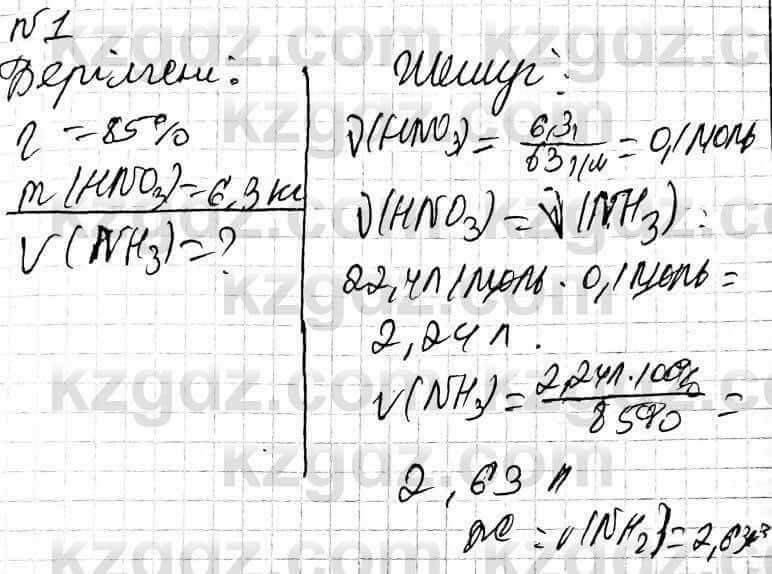 №1
Берілгені:
η = 85%
m(HNO₃) = 6,3 кг
V(NH₃) = ?
Шешуі:
ν(HNO₃) = 6,3г / 63 г/м = 0,1 моль
ν(HNO₃) = ν(NH₃)
22,4л/моль · 0,1 моль =
2,24 л.
v(NH₃) = 2,24л · 100% / 85% =
2,63 л
= v(NH₂) = 2,63
kzgdz.com